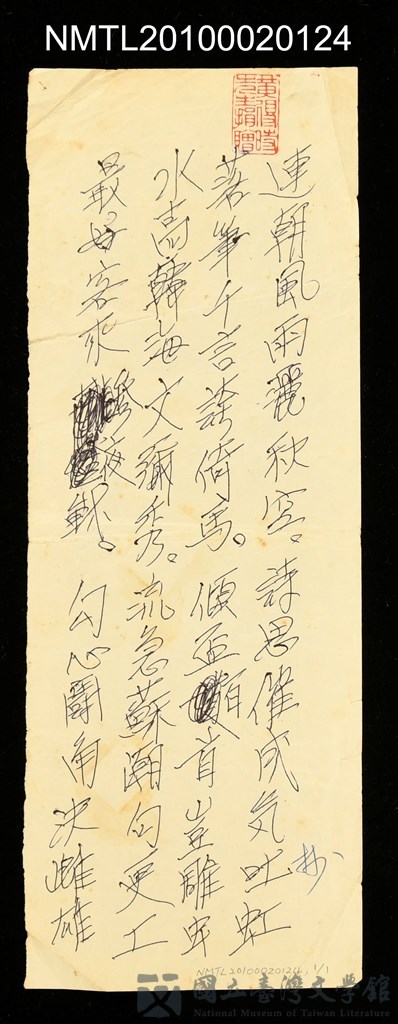 NMTL20100020124
黃得時先生捐贈
連朝風雨麗秋空。詩思催成気吐虹
落筆千言誇倚馬。傾盃百首豈雕虫
水高韓海文彌秀。流急蘇潮句更工
最好客來燈夜戦。勾心鬪角決雌雄
抄
NMTL20100020124, 1/1
國立臺灣文學館
National Museum of Taiwan Literature